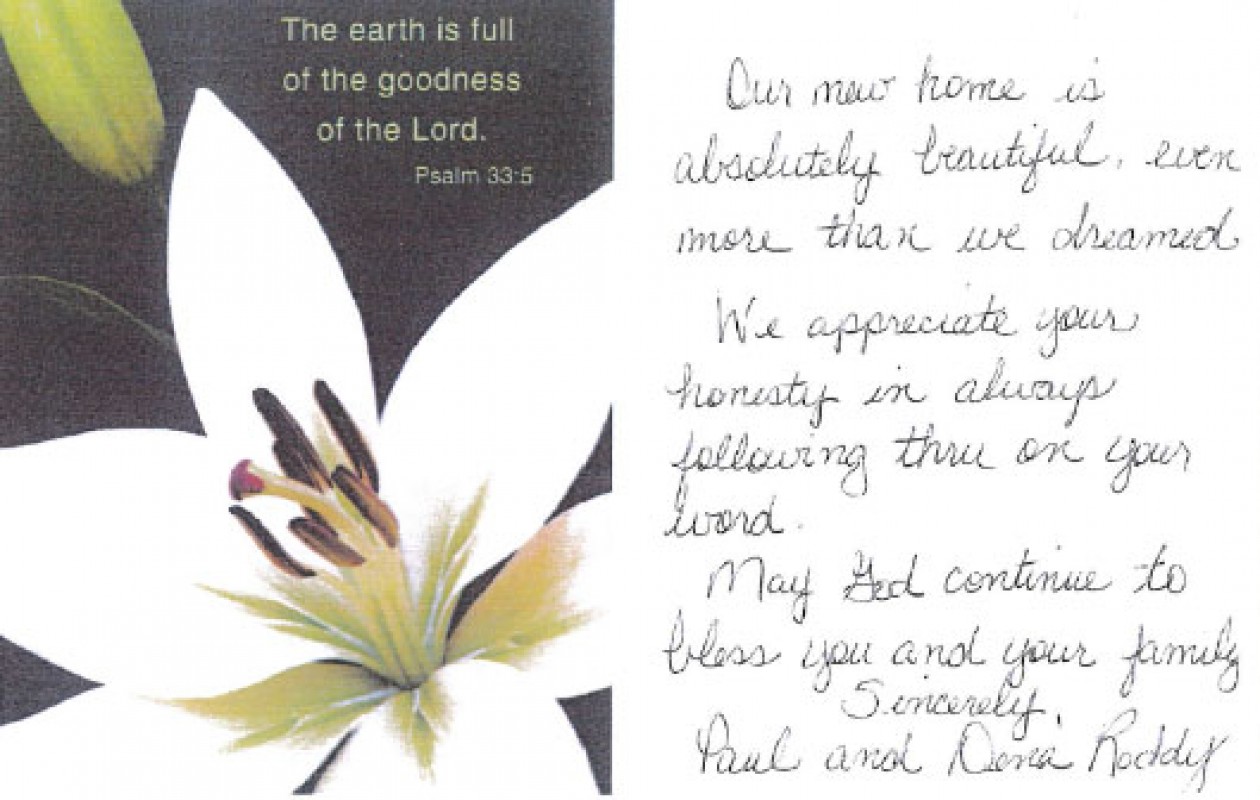 The earth is full
of the goodness
of the Lord.
Psalm 33:5
Our new home is
absolutely beautiful, even
more than we dreamed
We appreciate your
honesty in always
following thru on your
word.
May God continue to
bless you and your family
Sincerely,
Paul and Roddy